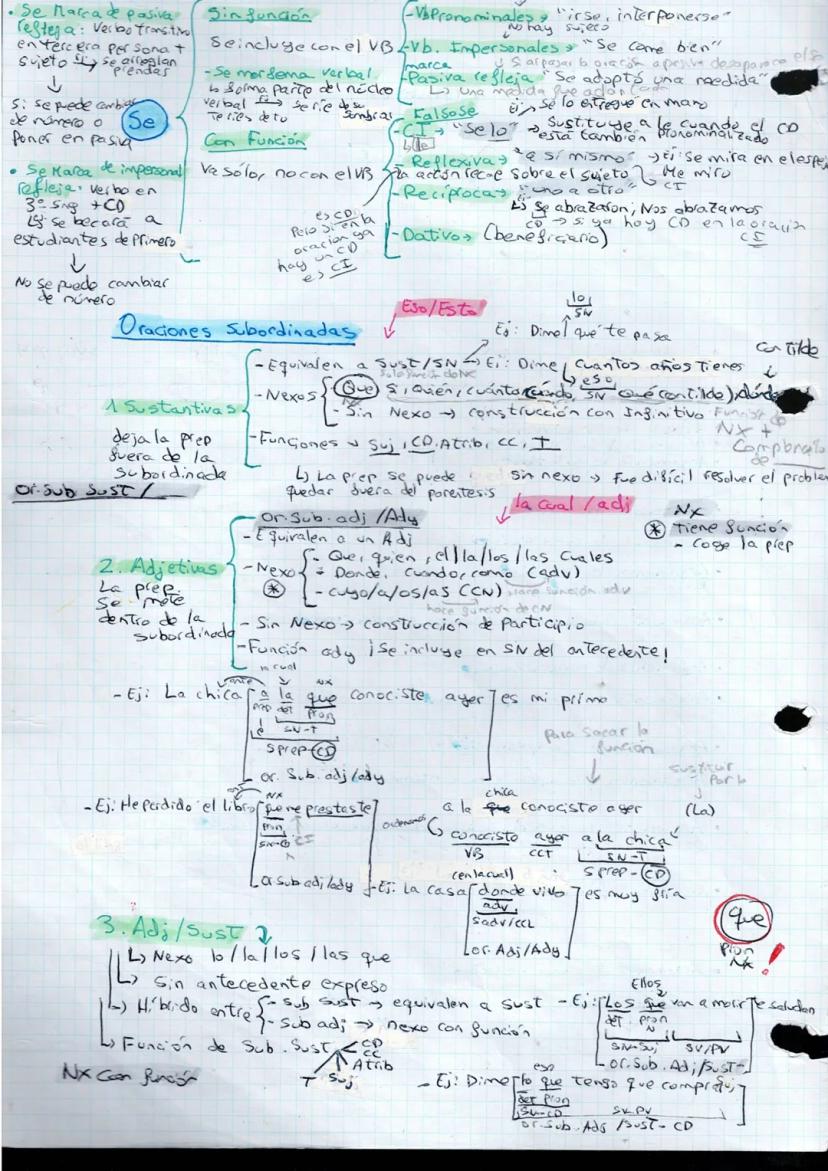 • Se Marca de pasiva
refleja: Verbo transitivo
en tercera persona +
sujeto Ej → se arreglan
prendas
↓
Si se puede cambiar
de número o
poner en pasiva
• Se Marca de impersonal
refleja: verbo en
3ª sing + CD
Ej: se becará a
estudiantes de Primero
↓
No se puede cambiar
de número
Se
Sin función
Se incluye con el VB
- Se morfema verbal
↳ forma parte del núcleo
verbal
Con Función
Va sólo, no con el VB
- Vb Pronominales → "irse, interponerse"
No hay sujeto
- Vb. Impersonales → "Se come bien"
marca
- Pasiva refleja "Se adoptó una medida"
↳ una medida fue adoptada
Falso Se
Ej: Se lo entregué en mano
- CI → "Se lo" → Sustituye a le cuando el CD
↳ le
está también pronominalizado
- Reflexiva → "a sí mismo" → Ej: Se mira en el espejo
la acción recae sobre el sujeto
Me miro
CI
- Recíproca → "uno a otro"
↳ Se abrazaron; Nos abrazamos
CD → si ya hay CD en la oración
CI
- Dativo → (beneficiario)
es CD
Pero si en la
oración ya
hay un CD
es CI
Oraciones Subordinadas
Eso/Esto
lo
SN
Ej: Dime qué te pasa
1 Sustantivas
deja la prep
fuera de la
subordinada
Or. Sub Sust /
- Equivalen a Sust/SN → Ej: Dime cuantos años tienes
eso
con tilde
- Nexos
Que
Si, Quién, cuánto, cuándo, SN Qué con tilde), dónde
- Sin Nexo → construcción con Infinitivo
NX +
- Funciones → Suj, CD, Atrib, CC, T
↳ La prep se puede
quedar fuera del parentesis
sin nexo → fue difícil resolver el problem
la cual / adj
Or. Sub. adj / Ady
2. Adjetivas
La prep.
se mete
dentro de la
subordinada
- Equivalen a un Adj
- Nexo
*
- Que, quien, el/la/los/las cuales
- Donde, cuando, como (adv)
- cuyo/a/os/as (CN)
hace función adv
hace función de CN
NX
* Tiene función
- Coge la prep
- Sin Nexo → construcción de Participio
- Función ady ¡Se incluye en SN del antecedente!
la cual
ante NX
- Ej: La chica a la que conociste ayer es mi primo
prep det pron
e SN-T
S prep - CD
or. Sub. adj/ady
para sacar la
función
↓
sustituir
por la
↓
(La)
NX
- Ej: He perdido el libro que me prestaste
pron
SN-CD CI
Or sub adj/ady
chica
a la que conociste ayer
ordenamos
conociste ayer a la chica
VB CCT SN-T
S prep - CD
(en la cual)
- Ej: La casa donde vivo es muy fría
adv
Sadv/CCL
or. Adj/Ady
que
pron
NX !
3. Adj/Sust
↳ Nexo lo/la/los/las que
↳ Sin antecedente expreso
↳ Híbrido entre
- Sub Sust → equivalen a sust
- Sub adj → nexo con función
↳ Función de Sub. Sust
CD
CC
Atrib
Suj
T
NX con función
Ellos
- Ej: Los que van a morir te saludan
det pron
N
SN-Suj SV/PV
or. Sub. Adj/Sust-
eso
- Ej: Dime lo que tengo que comprar
det pron
SN-CD SV-PV
or. Sub. Adj /Sust - CD